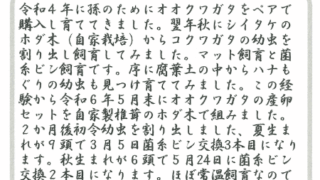 令和４年に孫のためにオオクワガタをペアで
購入し育ててきました。翌年秋にシイタケの
ホダ木（自家栽培）からコクワガタの幼虫を
割り出し飼育してみました。マット飼育と菌
糸ビン飼育です。序に腐葉土の中からハナも
ぐりの幼虫も見つけ育ててみました。この経
験から令和６年５月末にオオクワガタの産卵
セットを自家製椎茸のホダ木で組みました。
２か月後初令幼虫を割り出しました、夏生ま
れが９頭で３月５日菌糸ビン交換3本目になり
ます。秋生まれが６頭で５月24日に菌糸ビン
交換２本目になります。ほぼ常温飼育なので